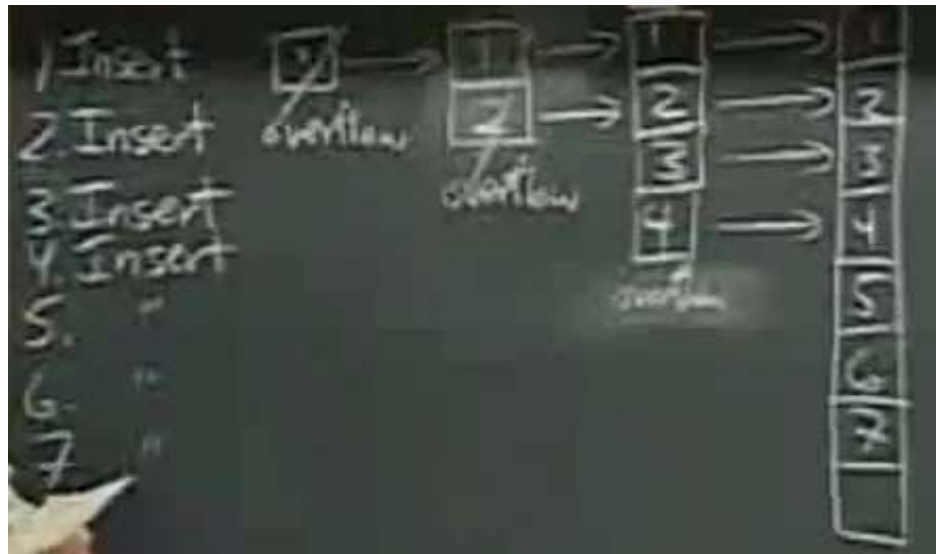 1 Insert
2. Insert
3. Insert
4. Insert
5. "
6. "
7 "
1
overflow
1
2
overflow
1
2
3
4
overflow
1
2
3
4
5
6
7